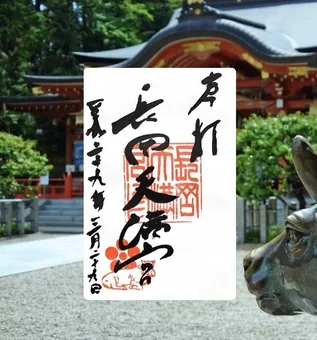 奉拝
長岡天満宮
平成二十九年三月二十九日
長岡
天満